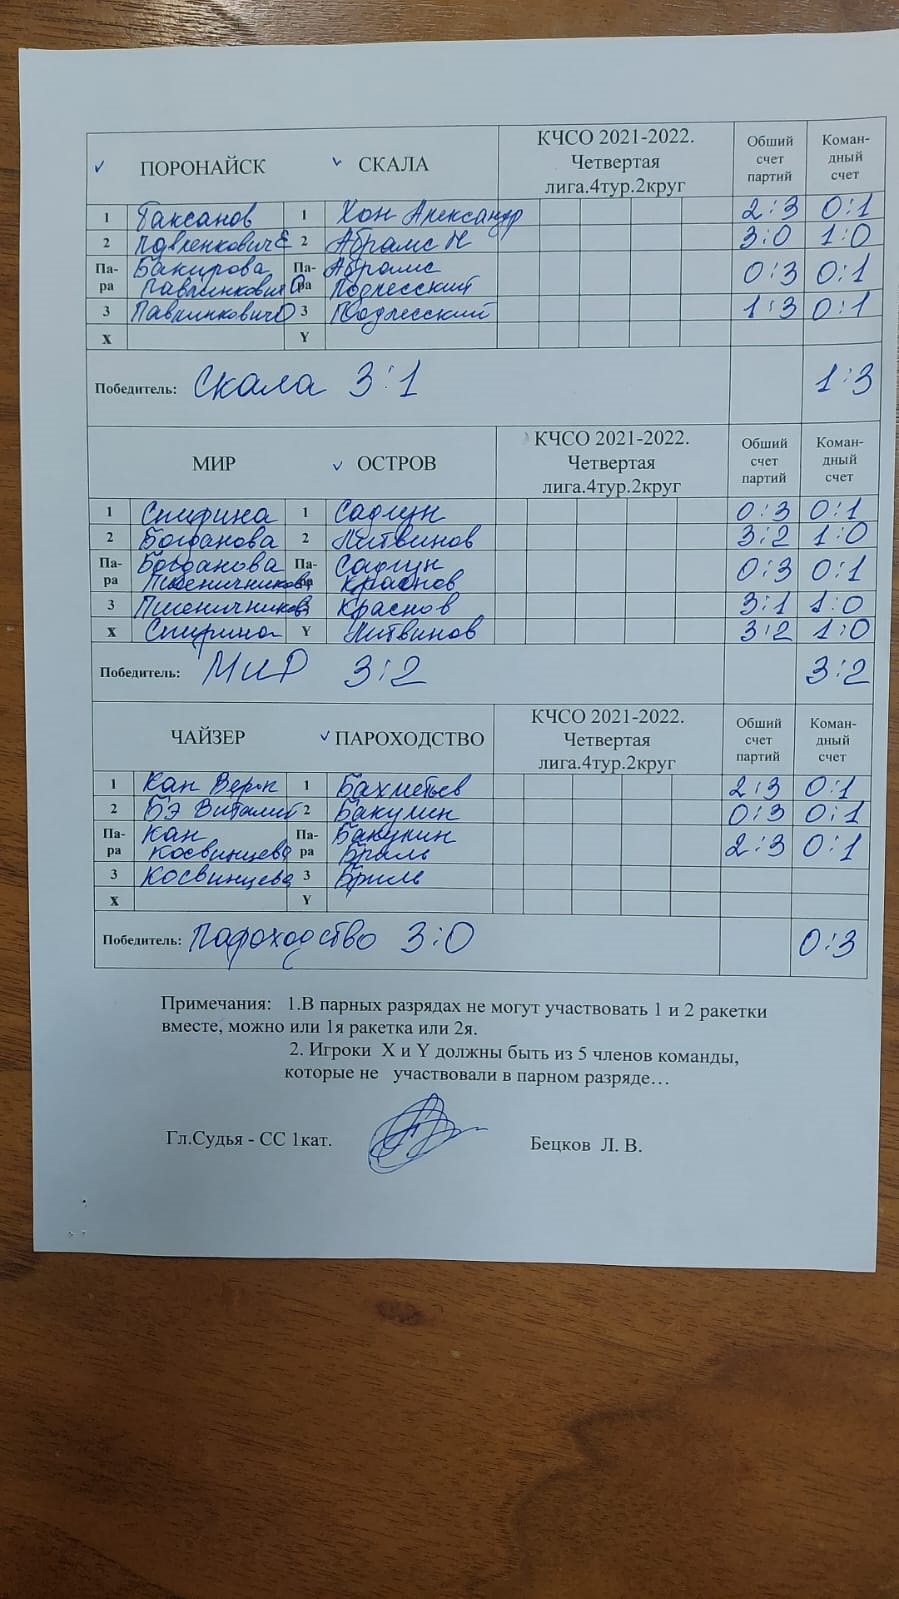 ✓ ПОРОНАЙСК ✓ СКАЛА КЧСО 2021-2022. Четвертая лига.4тур.2круг Обший счет партий Коман-дный счет
1 Таксанов 1 Хон Александр 2:3 0:1
2 Павленкович Е 2 Абрамс М 3:0 1:0
Па-ра Бакирова Па-ра Абрамс 0:3 0:1
Павлинкович О Подлесский
3 Павлинкович О 3 Подлесский 1:3 0:1
X Y
Победитель: Скала 3:1 1:3
МИР ✓ ОСТРОВ КЧСО 2021-2022. Четвертая лига.4тур.2круг Обший счет партий Коман-дный счет
1 Спирина 1 Садлун 0:3 0:1
2 Богданова 2 Литвинов 3:2 1:0
Па-ра Богданова Па-ра Садлун 0:3 0:1
Пшеничников Краснов
3 Пшеничников 3 Краснов 3:1 1:0
X Спирина Y Литвинов 3:2 1:0
Победитель: МИР 3:2 3:2
ЧАЙЗЕР ✓ ПАРОХОДСТВО КЧСО 2021-2022. Четвертая лига.4тур.2круг Обший счет партий Коман-дный счет
1 Кан 1 Бахметьев 2:3 0:1
2 Бэ Виталий 2 Бакулин 0:3 0:1
Па-ра Кан Па-ра Бакулин 2:3 0:1
Косвинцева Бриль
3 Косвинцева 3 Бриль
X Y
Победитель: Пароходство 3:0 0:3
Примечания: 1.В парных разрядах не могут участвовать 1 и 2 ракетки
вместе, можно или 1я ракетка или 2я.
2. Игроки X и Y должны быть из 5 членов команды,
которые не участвовали в парном разряде…
Гл.Судья - СС 1кат. Бецков Л. В.